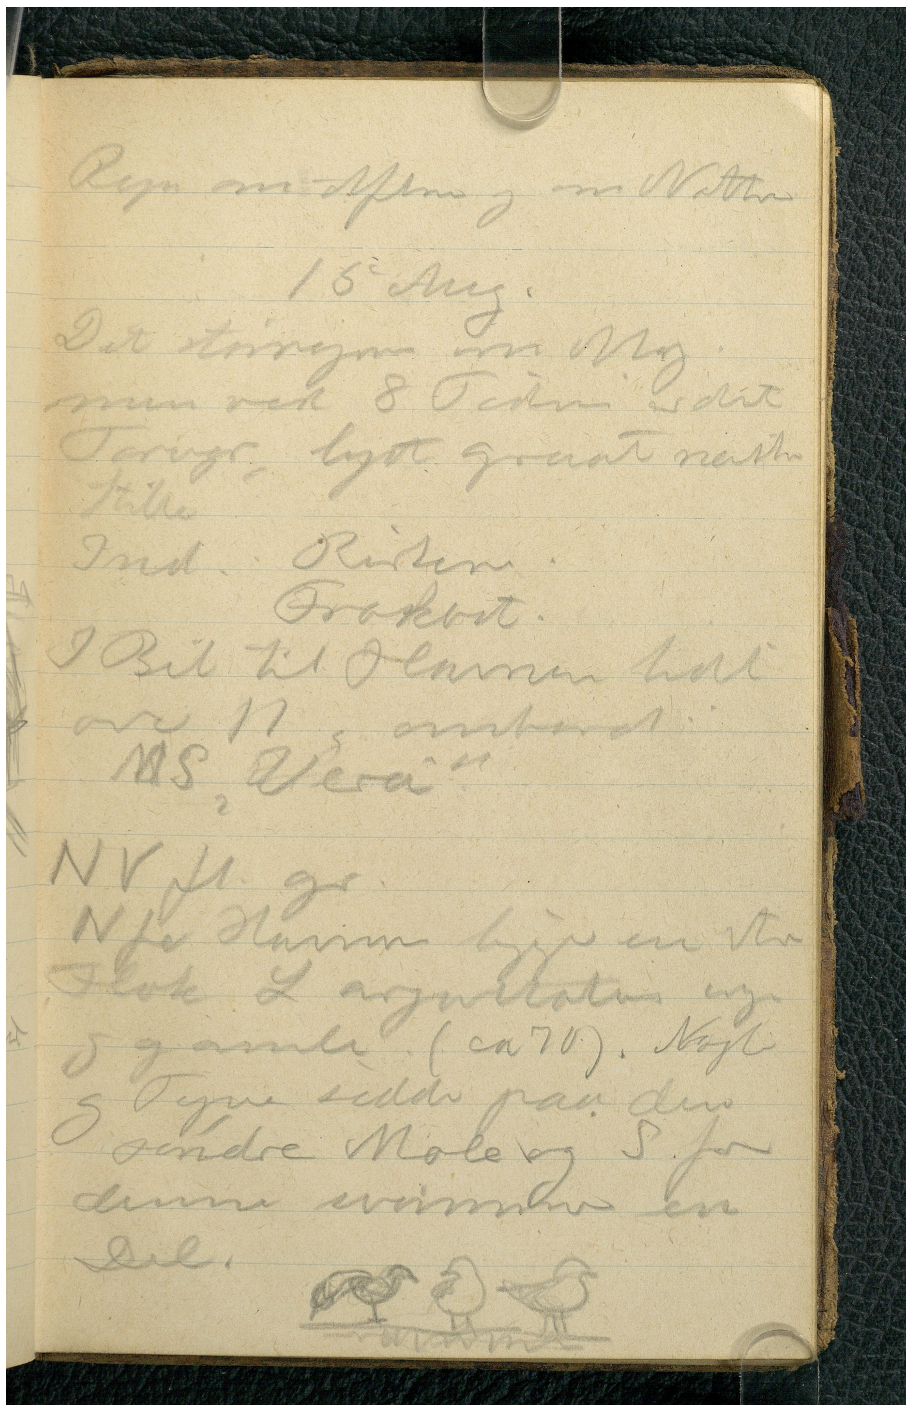 Regn om Aftenen og om Natten
15 Aug.
Det støvregner om Mog.
men ved 8 Tiden er det
Tørvejr, lyst graat næsten
stille
Ind.
Frokost.
I Bil til Havnen lidt
over 11 og ombord i
MS „Vera“
NV fl. gr.
N for Havnen ligger en stor
Flok L argentatus unge
og gamle (ca 70). Nogle
og Tyve sidder paa den
søndre Mole og S for
denne svømmer en
Del.